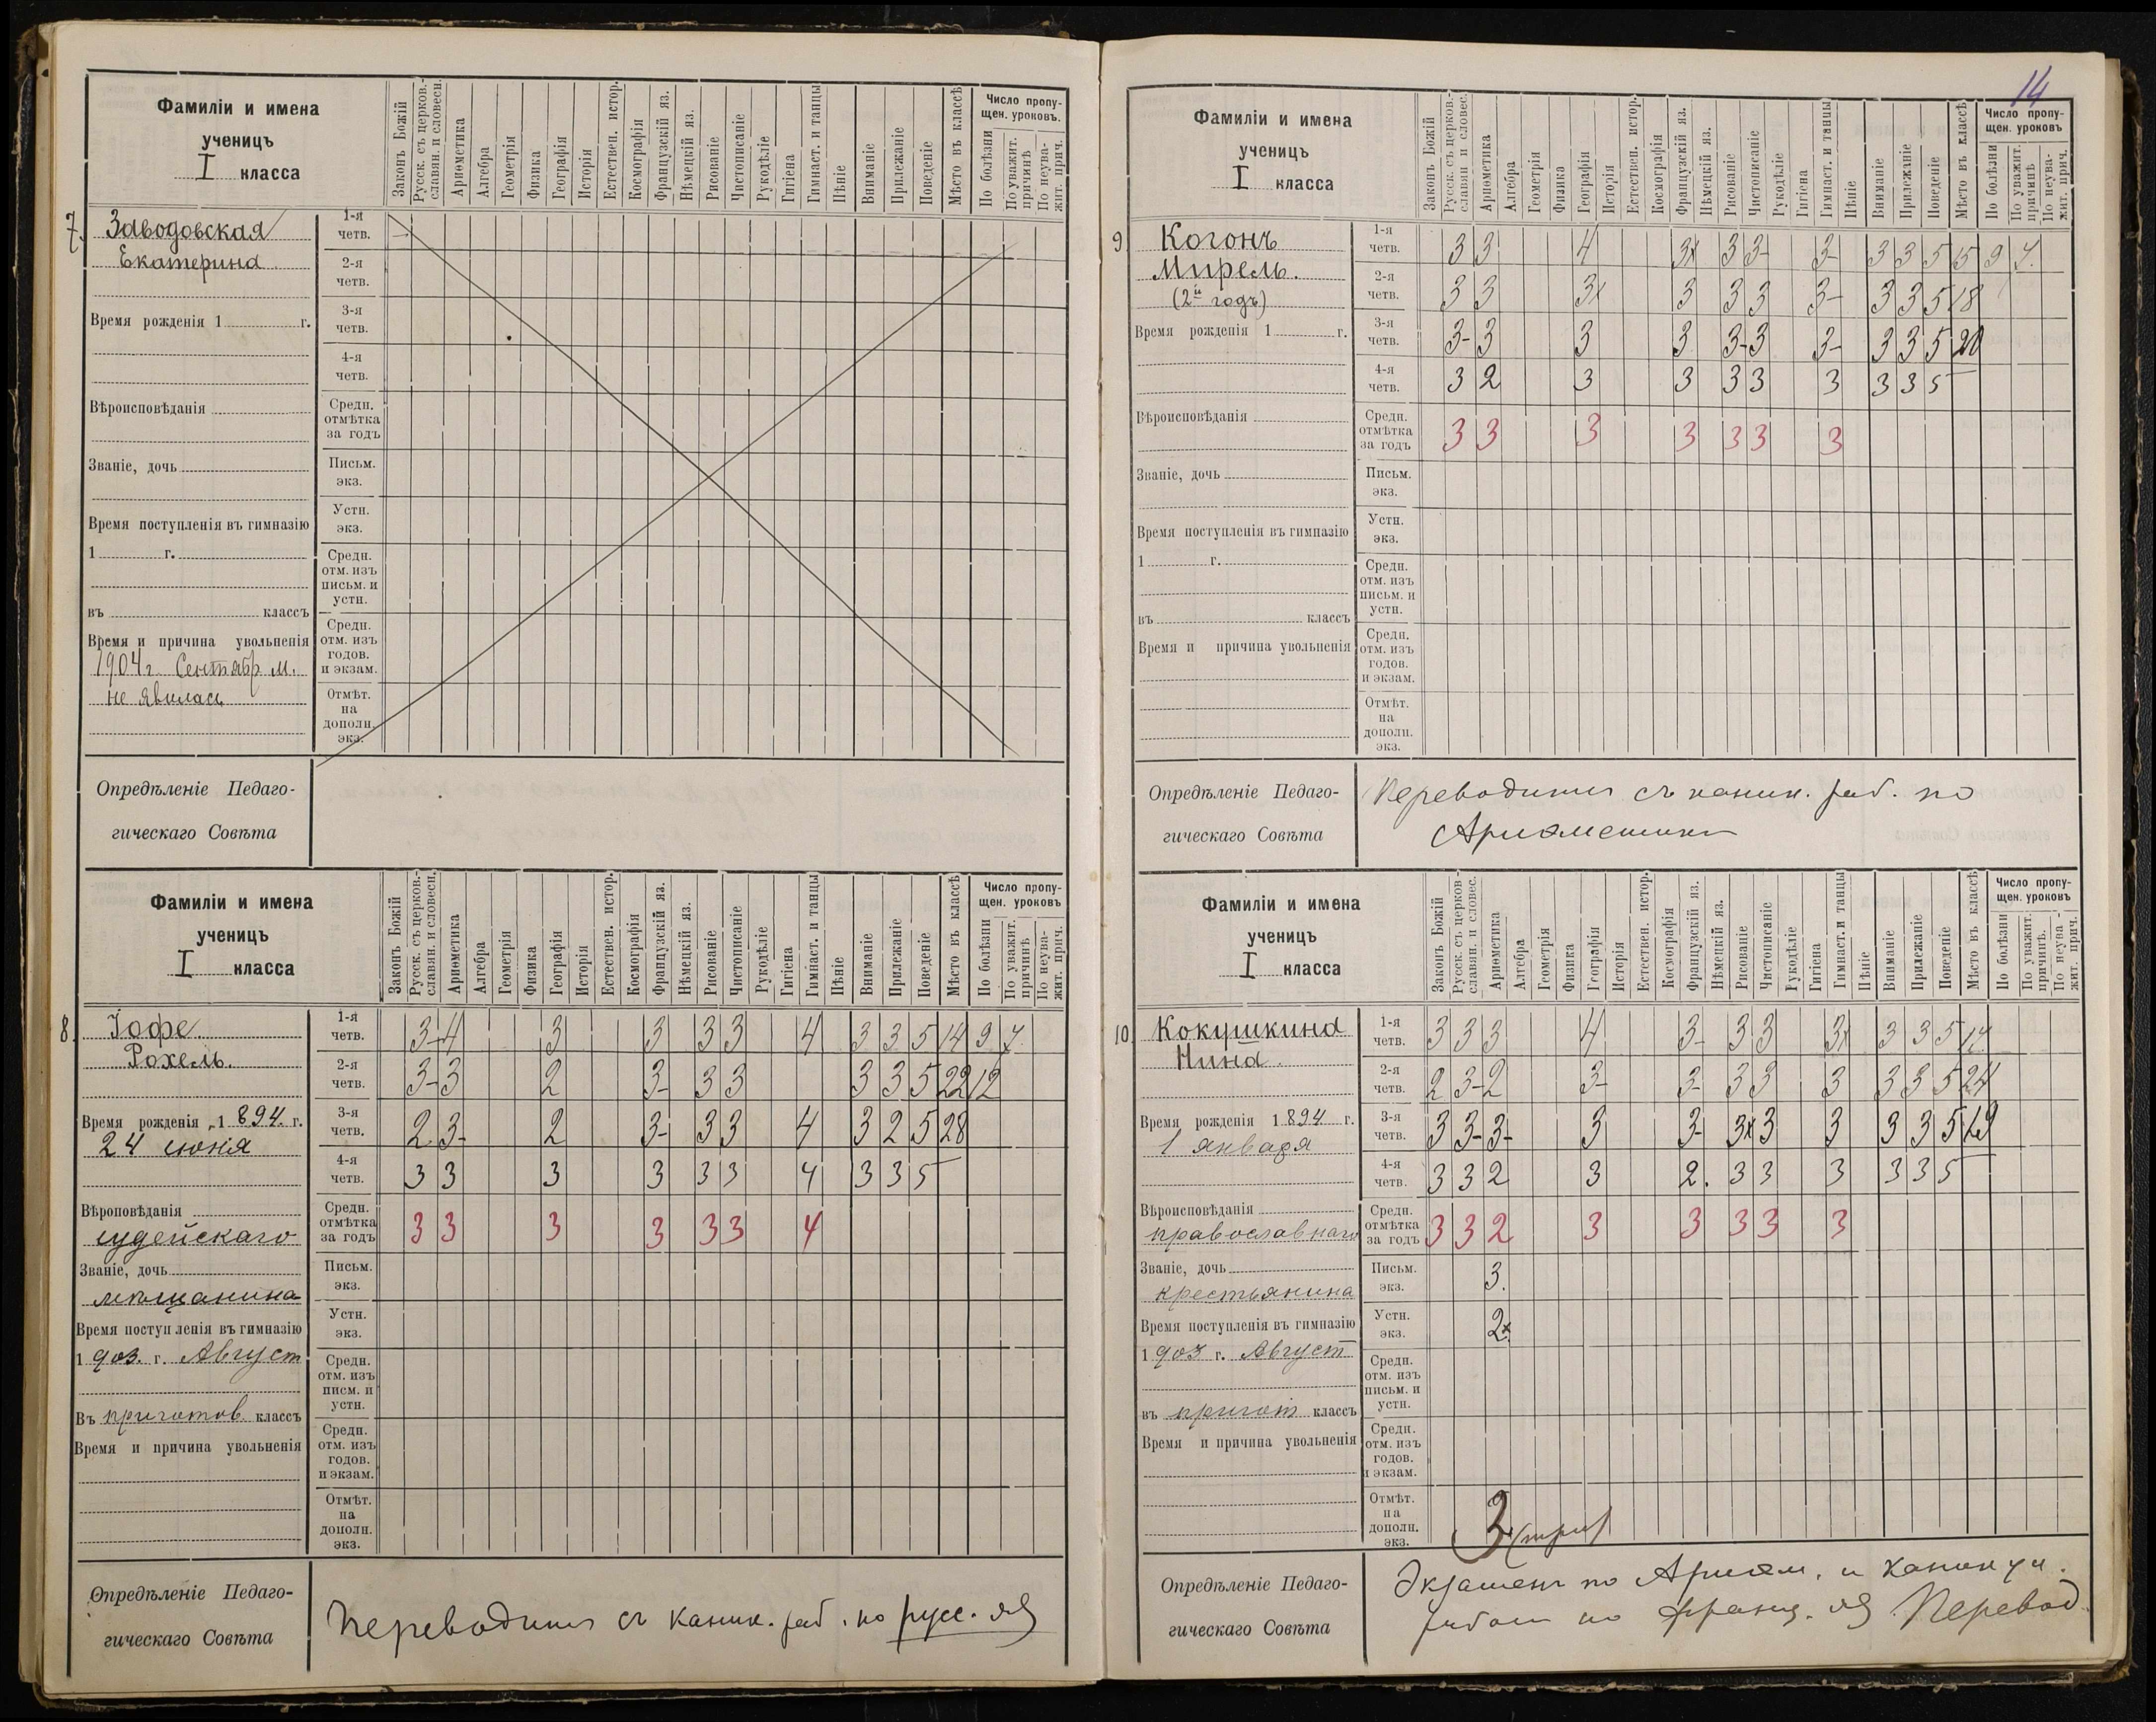 14
Фамиліи и имена
ученицъ
I класса
Законъ Божій
Русск. съ церков.-
славян. и словесн.
Ариѳметика
Алгебра
Геометрія
Физика
Географія
Исторія
Естествен. истор.
Космографія
Французскій яз.
Нѣмецкій яз.
Рисованіе
Чистописаніе
Рукодѣліе
Гигіена
Гимнаст. и танцы
Пѣніе
Вниманіе
Прилежаніе
Поведеніе
Мѣсто въ классѣ
Число пропу-
щен. уроковъ.
По болѣзни
По уважит.
причинѣ
По неува-
жит. прич.
7. Заводовская
Екатерина
Время рожденія 1 г.
Вѣроисповѣданія
Званіе, дочь
Время поступленія въ гимназію
1 г.
въ классъ
Время и причина увольненія
1904 г. Сентябр м.
не явилась
1-я
четв.
2-я
четв.
3-я
четв.
4-я
четв.
Средн.
отмѣтка
за годъ
Письм.
экз.
Устн.
экз.
Средн.
отм. изъ
письм. и
устн.
Средн.
отм. изъ
годов.
и экзам.
Отмѣт.
на
дополн.
экз.
Опредѣленіе Педаго-
гическаго Совѣта
Фамиліи и имена
ученицъ
I класса
Законъ Божій
Русск. съ церков.-
славян. и словесн.
Ариѳметика
Алгебра
Геометрія
Физика
Географія
Исторія
Естествен. истор.
Космографія
Французскій яз.
Нѣмецкій яз.
Рисованіе
Чистописаніе
Рукодѣліе
Гигіена
Гимнаст. и танцы
Пѣніе
Вниманіе
Прилежаніе
Поведеніе
Мѣсто въ классѣ
Число пропу-
щен. уроковъ
По болѣзни
По уважит.
причинѣ
По неува-
жит. прич.
8. Іофе
Рохель.
Время рожденія 1894. г.
24 іюня
Вѣроповѣданія
іудейскаго
Званіе, дочь
мѣщанина
Время поступленія въ гимназію
1903. г. Август
Въ приготов классъ
Время и причина увольненія
1-я
четв. 3- 4 3 3 3 3 4 3 3 5 14 9 7
2-я
четв. 3- 3 2 3- 3 3 3 3 5 22 12
3-я
четв. 2 3- 2 3- 3 3 4 3 2 5 28
4-я
четв. 3 3 3 3 3 3 4 3 3 5
Средн.
отмѣтка
за годъ 3 3 3 3 3 3 4
Письм.
экз.
Устн.
экз.
Средн.
отм. изъ
писм. и
устн.
Средн.
отм. изъ
годов.
и экзам.
Отмѣт.
на
дополн.
экз.
Опредѣленіе Педаго-
гическаго Совѣта
Переводится съ каник. раб. по русс. яз
Фамиліи и имена
ученицъ
I класса
Законъ Божій
Русск. съ церков.-
славян и словес.
Ариѳметика
Алгебра
Геометрія
Физика
Географія
Исторія
Естествен. истор.
Космографія
Французскій яз.
Нѣмецкій яз.
Рисованіе
Чистописаніе
Рукодѣліе
Гигіена
Гимнаст. и танцы
Пѣніе
Вниманіе
Прилежаніе
Поведеніе
Мѣсто въ классѣ
Число пропу-
щен. уроковъ
По болѣзни
По уважит.
причинѣ
По неува-
жит. прич.
9. Когонъ
Мирель.
(2й годъ)
Время рожденія 1 г.
Вѣроисповѣданія
Званіе, дочь
Время поступленія въ гимназію
1 г.
въ классъ
Время и причина увольненія
1-я
четв. 3 3 4 3 3 3- 3- 3 3 5 15 9 7.
2-я
четв. 3 3 3 3 3 3 3- 3 3 5 18
3-я
четв. 3- 3 3 3 3- 3 3- 3 3 5 20
4-я
четв. 3 2 3 3 3 3 3 3 3 5
Средн.
отмѣтка
за годъ 3 3 3 3 3 3 3
Письм.
экз.
Устн.
экз.
Средн.
отм. изъ
письм. и
устн.
Средн.
отм. изъ
годов.
и экзам.
Отмѣт.
на
дополн.
экз.
Опредѣленіе Педаго-
гическаго Совѣта
Переводится съ каник. раб. по
Ариѳметикѣ
Фамиліи и имена
ученицъ
I класса
Законъ Божій
Русск. съ церков-
славян. и словес.
Ариѳметика
Алгебра
Геометрія
Физика
Географія
Исторія
Естествен. истор.
Космографія
Французскій яз.
Нѣмецкій яз.
Рисованіе
Чистописаніе
Рукодѣліе
Гигіена
Гимнаст. и танцы
Пѣніе
Вниманіе
Прилежаніе
Поведеніе
Мѣсто въ классѣ
Число пропу-
щен. уроковъ
По болѣзни
По уважит.
причинъ.
По неува-
жит. прич.
10. Кокушкина
Нина.
Время рожденія 1894 г.
1 января
Вѣроисповѣданія
православнаго
Званіе, дочь
крестьянина
Время поступленія въ гимназію
1903 г. Август
въ пригот классъ
Время и причина увольненія
1-я
четв. 3 3 3 4 3- 3 3 3 3 3 5 17
2-я
четв. 2 3- 2 3- 3- 3 3 3 3 3 5 24
3-я
четв. 3 3- 3- 3 3- 3 3 3 3 3 5 19
4-я
четв. 3 3 2 3 2. 3 3 3 3 3 5
Средн.
отмѣтка
за годъ 3 3 2 3 3 3 3 3
Письм.
экз. 3.
Устн.
экз. 2
Средн.
отм. изъ
письм. и
устн.
Средн.
отм. изъ
годов.
и экзам.
Отмѣт.
на
дополн.
экз. 3 (три)
Опредѣленіе Педаго-
гическаго Совѣта
Экзаменъ по Ариѳм. и каникул.
работ по франц. яз Перевод.